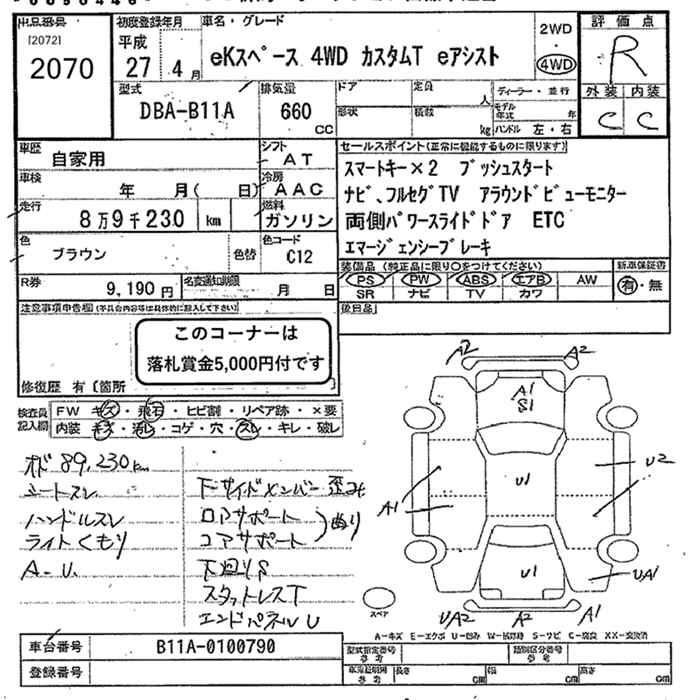 出品番号 初度登録年月 車名・グレード 評価点
[2072] 平成 2WD
2070 27年4月 eKスペース 4WD カスタムT eアシスト 4WD R
型式 排気量 ドア 定員 人 ディーラー・並行 外装 内装
DBA-B11A 660 CC 形状 積載 kg モデル年式 年 ハンドル 左・右 C C
車歴 自家用 シフト AT セールスポイント(正常に機能するものに限ります)
車検 年 月( 日) 冷房 AAC スマートキー×2 プッシュスタート
走行 8万9千230 km 燃料 ガソリン ナビ、フルセグTV アラウンドビューモニター
両側パワースライドドア ETC
色 ブラウン 色替 色コード C12 エマージェンシーブレーキ
R券 9,190円 名変通知期限 月 日 装備品(純正品に限り○をつけてください) 新車保証書
PS PW ABS エアB AW 有・無
SR ナビ TV カワ
注意事項申告欄(不具合内容等は具体的に記入して下さい) 後日品
このコーナーは
落札賞金5,000円付です
修復歴 有〔箇所
検査員記入欄 FW キズ・飛石・ヒビ割・リペア跡・×要
内装 キズ・汚レ・コゲ・穴・スレ・キレ・破レ
A2 A2
A1
S1
オド 89,230km
シートスレ 下サイドメンバー歪み
ハンドルスレ ロアサポート
ライトくもり コアサポート
A-U. 下廻りS
スタットレスT
エンドパネルU
U1 U2
A1
U1 UA1
スペア UA2 A2 A1
A-キズ E-エクボ U-凹み W-補修跡 S-サビ C-腐食 XX-交換済
車台番号 B11A-0100790 型式指定番号 参考 類別区分番号 参考
登録番号 車検証明用 参考 長さ cm 幅 cm 高さ cm